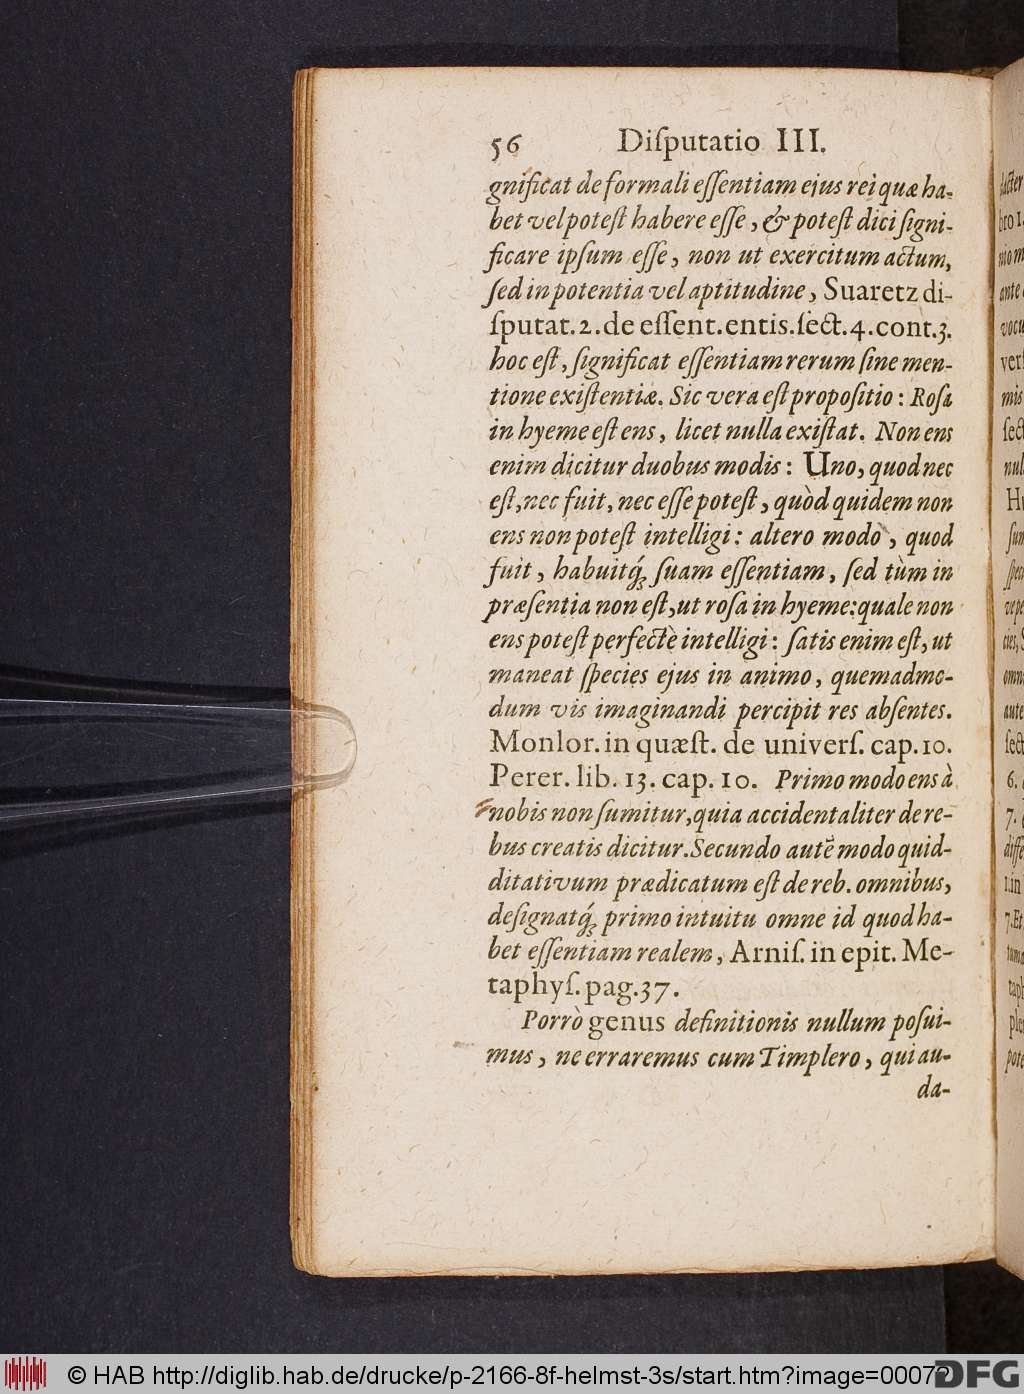 56 Diſputatio III.
gnificat de formali eſſentiam ejus rei quæ ha-
bet vel poteſt habere eſſe, & poteſt dici ſigni-
ficare ipſum eſſe, non ut exercitum actum,
ſed in potentia vel aptitudine, Suaretz di-
ſputat.2.de eſſent.entis.ſect.4.cont.3.
hoc eſt, ſignificat eſſentiam rerum ſine men-
tione exiſtentiæ. Sic vera eſt propoſitio: Roſa
in hyeme eſt ens, licet nulla exiſtat. Non ens
enim dicitur duobus modis: Uno, quod nec
eſt, nec fuit, nec eſſe poteſt, quòd quidem non
ens non poteſt intelligi: altero modò, quod
fuit, habuitq́; ſuam eſſentiam, ſed tùm in
præſentia non eſt, ut roſa in hyeme: quale non
ens poteſt perfectè intelligi: ſatis enim eſt, ut
maneat ſpecies ejus in animo, quemadmo-
dum vis imaginandi percipit res abſentes.
Monlor. in quæſt. de univerſ. cap.10.
Perer. lib. 13. cap. 10. Primo modo ens à
nobis non ſumitur, quia accidentaliter de re-
bus creatis dicitur. Secundo autẽ modo quid-
ditativum prædicatum eſt de reb. omnibus,
deſignatq́; primo intuitu omne id quod ha-
bet eſſentiam realem, Arniſ. in epit. Me-
taphyſ. pag.37.
Porrò genus definitionis nullum poſui-
mus, ne erraremus cum Timplero, qui au-
da-
© HAB http://diglib.hab.de/drucke/p-2166-8f-helmst-3s/start.htm?image=00072
DFG